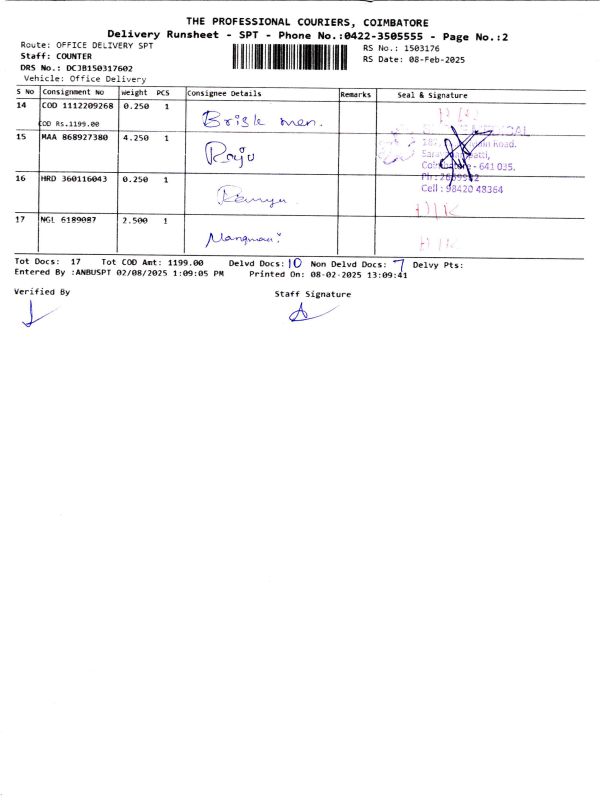 THE PROFESSIONAL COURIERS, COIMBATORE
Delivery Runsheet - SPT - Phone No.:0422-3505555 - Page No.:2
Route: OFFICE DELIVERY SPT
RS No.: 1503176
Staff: COUNTER
RS Date: 08-Feb-2025
DRS No.: DCJB150317602
Vehicle: Office Delivery
S No Consignment No Weight PCS Consignee Details Remarks Seal & Signature
14 COD 1112209268 0.250 1 Brisk men.
COD RS.1199.00
15 MAA 868927380 4.250 1 Raju
Road.
641 035.
Cell : 98420 48364
16 HRD 360116043 0.250 1 Ramya
17 NGL 6189087 2.500 1
Tot Docs: 17 Tot COD Amt: 1199.00 Delvd Docs: 10 Non Delvd Docs: 7 Delvy Pts:
Entered By :ANBUSPT 02/08/2025 1:09:05 PM Printed On: 08-02-2025 13:09:41
Verified By
Staff Signature